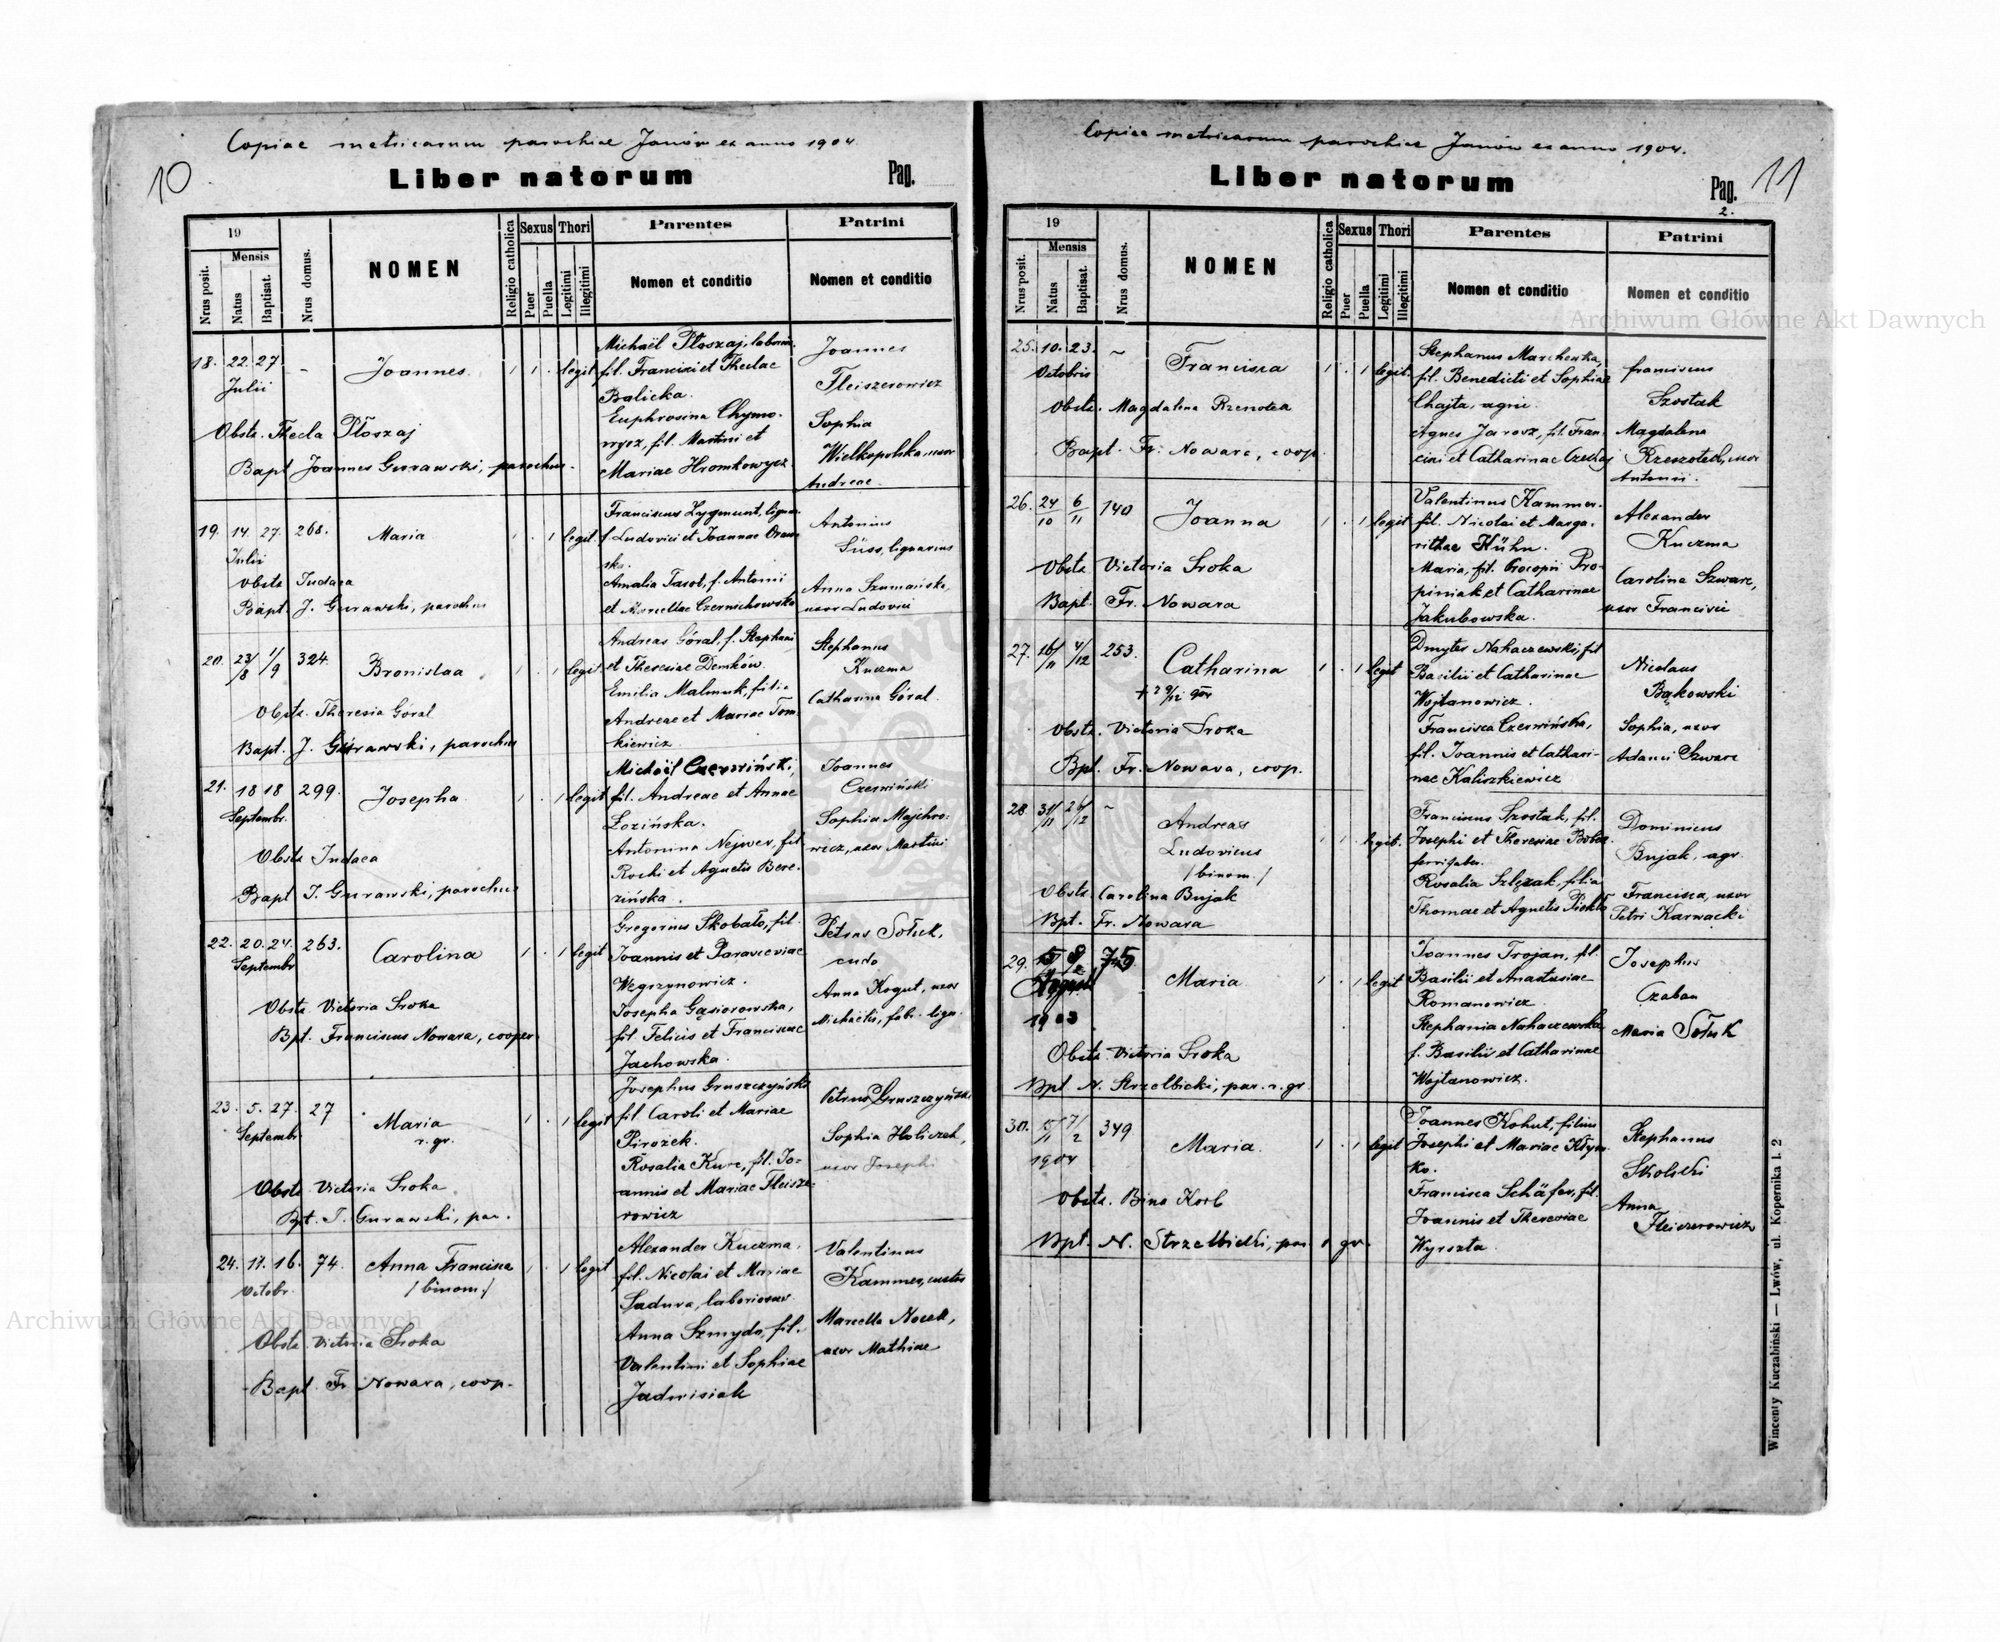 Copiae metricarum parochiae Janów ex anno 1904.
10
Liber natorum
Pag.
19
Mensis
Nrus posit.
Natus
Baptisat.
Nrus domus.
NOMEN
Religio catholica
Sexus
Puer
Puella
Thori
Legitimi
Illegitimi
Parentes
Nomen et conditio
Patrini
Nomen et conditio
18. 22. 27 - Joannes. 1 1 . legit
Julii
Michaël Płoszaj, labor.
fil. Francisci et Theclae
Balicka.
Euphrosina Chymo-
wycz, fil. Martini et
Mariae Hromkowycz
Joannes
Fleiszerowicz
Sophia
Wielkopolska, uxor
Andreae.
Obstr. Thecla Płoszaj
Bapt. Joannes Gurawski, parochus.
19. 14. 27. 268. Maria 1 . 1 legit.
Julii
Franciscus Zygmunt, lignar.
f. Ludovici et Joannae Oraw-
ska.
Amalia Tasot, f. Antonii
et Marcellae Czernichowska
Antonius
Süss, lignarius
Anna Szumańska,
uxor Ludovici
Obstr. Judaea
Bapt. J. Gurawski, parochus
20. 23/8 1/9 324. Bronislaa 1 . 1 legit
Andreas Góral, f. Stephani
et Theresiae Demków.
Emilia Malmuk, filia
Andreae et Mariae Tom-
kiewicz.
Stephanus
Kuczma
Catharina Góral.
Obstr. Theresia Góral
Bapt. J. Gurawski, parochus
21. 18 18 299. Josepha. 1 . 1 legit
Septembr.
Michaël Czerwiński,
fil. Andreae et Annae
Łozińska.
Antonina Nejwer, fil
Rochi et Agnetis Bere-
zińska.
Joannes
Czerwiński
Sophia Majchro-
wicz, uxor Martini
Obstr. Judaea
Bapt. J. Gurawski, parochus
22. 20. 24. 263. Carolina 1 . 1 legit
Septembr
Gregorius Skobało, fil.
Joannis et Parasceviae
Węgrzynowicz.
Josepha Gąsiorowska,
fil. Felicis et Franciscae
Jachowska.
Petrus Sołuk,
cudo
Anna Kogut, uxor
Michaëlis, fabr. lign.
Obstr. Victoria Sroka
Bpt. Franciscus Nowara, cooper.
23. 5. 27. 27 Maria 1 . 1 legit
Septembr. r. gr.
Josephus Gruszczyński
fil. Caroli et Mariae
Pirożek.
Rosalia Kurc, fil. Jo-
annis et Mariae Fleisze-
rowicz
Petrus Gruszczyński
Sophia Holiczek,
uxor Josephi
Obstr. Victoria Sroka
Bpt. J. Gurawski, par.
24. 11. 16. 74. Anna Francisca 1 . 1 legit
Octobr. /binom./
Alexander Kuczma,
fil. Nicolai et Mariae
Sadura, laboriosus.
Anna Szmyda, fil.
Valentini et Sophiae
Jadwisiak
Valentinus
Kammer, custos
Marcella Nosek,
uxor Mathiae
Obstr. Victoria Sroka
Bapt. Fr. Nowara, coop.
Copiae metricarum parochiae Janów ex anno 1904.
11
Liber natorum
Pag.
2.
19
Mensis
Nrus posit.
Natus
Baptisat.
Nrus domus.
NOMEN
Religio catholica
Sexus
Puer
Puella
Thori
Legitimi
Illegitimi
Parentes
Nomen et conditio
Patrini
Nomen et conditio
25. 10. 23. ~ Francisca 1 . 1 legit.
Octobris
Stephanus Marchewka,
fil. Benedicti et Sophiae
Chajta, agric.
Agnes Jarosz, fil. Fran-
cisci et Catharinae Czechaj
franciscus
Szostak
Magdalena
Rzeszotek, uxor
Antonii.
Obstr. Magdalena Rzenotea
Bapt. Fr. Nowara, coop.
26. 24/10 6/11 140 Joanna 1 . 1 legit
Valentinus Kammer.
fil. Nicolai et Marga-
rithae Hühn.
Maria, fil. Procopii Pro-
piniak et Catharinae
Jakubowska.
Alexander
Kuczma
Carolina Szwarc,
uxor Francisci
Obstr. Victoria Sroka
Bapt. Fr. Nowara
27. 16/11 4/12 253. Catharina 1 . 1 legit
Dmyter Nahaczewski, fil
Basilii et Catharinae
Wojtanowicz.
Francisca Czerwińska,
fil. Joannis et Cathari-
nae Kaliszkiewicz
Nicolaus
Bąkowski
Sophia, uxor
Adami Szwarc
Obstr. Victoria Sroka
Bpt. Fr. Nowara, coop.
28 31/11 26/12 ~ Andreas 1 1 . legit.
Ludovicus
/binom./
Franciscus Szostak, fil.
Josephi et Theresiae Bober
ferrifaber.
Rosalia Szlęzak, filia
Thomae et Agnetis
Dominicus
Bujak, agr.
Francisca, uxor
Petri Karnacki
Obstr. Carolina Bujak
Bpt. Fr. Nowara
29. 75 Maria 1 . 1 legit
1903
Joannes Trojan, fil.
Basilii et Anastasiae
Romanowicz.
Stephania Nahaczewska,
f. Basilii et Catharinae
Wojtanowicz.
Josephus
Czaban
Maria Sołuk
Obstr. Victoria Sroka
Bpt. N. Strzelbicki, par. r. gr.
30. 349 Maria. 1 . 1 legit
1904
Joannes Kohut, filius
Josephi et Mariae Kłym-
ko.
Francisca Schäfer, fil.
Joannis et Theresiae
Wyrszta.
Stephanus
Skolski
Anna
Fleiszerowicz
Obstr. Bina Korb
Bpt. N. Strzelbicki, par. r. gr.
Wincenty Kuczabiński — Lwów, ul. Kopernika l. 2
Archiwum Główne Akt Dawnych
Archiwum Główne Akt Dawnych